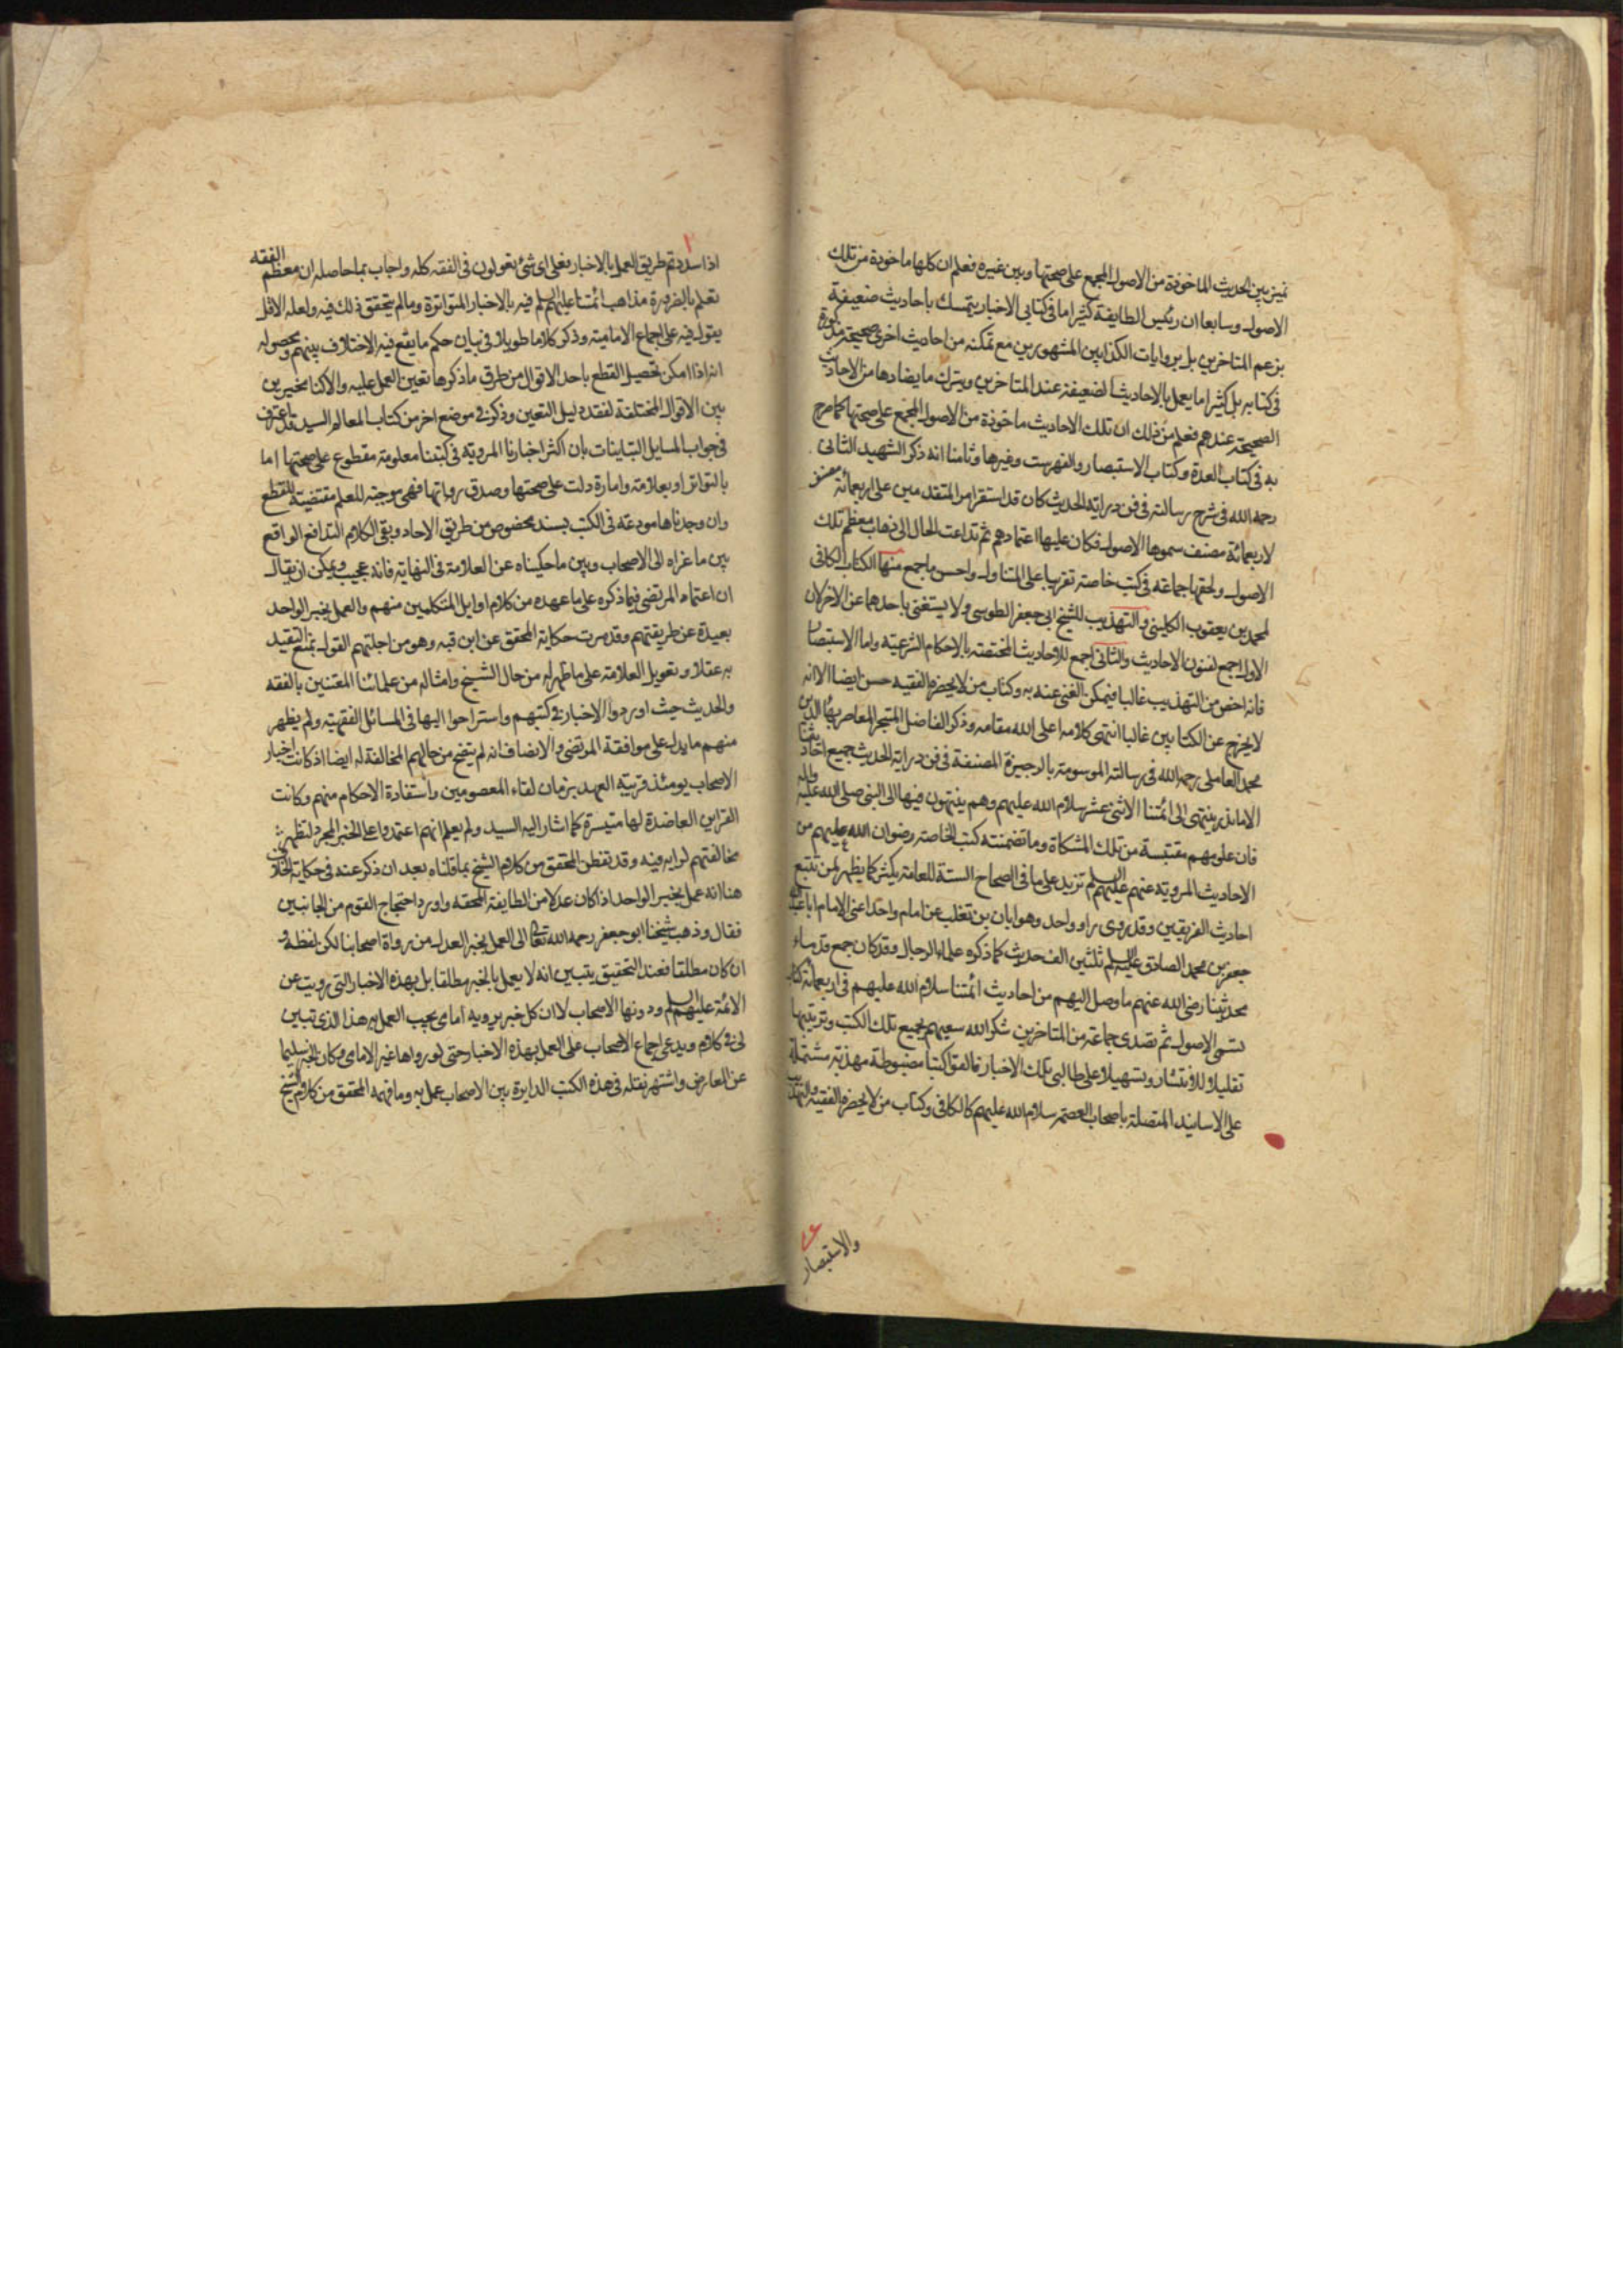 تميز بين الحديث الماخوذة من الاصول المجمع على صحتها وبين غيره فعلم ان كلها ماخوذة من تلك
الاصول وسابعا ان رئيس الطايفة كثيرا ما في كتابي الاخبار يتمسك باحاديث ضعيفة
بزعم المتاخرين بل بروايات الكذابين المشهورين مع تمكنه من احاديث اخرى صحيحة مذكورة
في كتابه بل كثيرا ما يعمل بالاحاديث الضعيفة عند المتاخرين ويترك ما يضادها من الاحاديث
الصحيحة عندهم فعلم من ذلك ان تلك الاحاديث ماخوذة من الاصول المجمع على صحتها كما صرح
به في كتاب العدة وكتاب الاستبصار والفهرست وغيرها وثامنا انه ذكر الشهيد الثاني
رحمه الله في شرح رسالته في فن دراية الحديث كان قد استقر امر المتقدمين على اربعمائة مصنف
لاربعمائة مصنف سموها الاصول فكان عليها اعتمادهم ثم تداعت الحال الى ذهاب معظم تلك
الاصول ولخصها جماعة في كتب خاصة تقريبا على المتناول واحسن ما جمع منها الكتاب الكافي
لمحمد بن يعقوب الكليني والتهذيب للشيخ ابي جعفر الطوسي ولا يستغنى باحدهما عن الاخر لان
الاول اجمع لفنون الاحاديث والثاني اجمع للاحاديث المختصة بالاحكام الشرعية واما الاستبصار
فانه اخص من التهذيب غالبا فيمكن الغنى عنه به وكتاب من لا يحضره الفقيه حسن ايضا الا انه
لا يخرج عن الكتابين غالبا انتهى كلامه اعلى الله مقامه وذكر الفاضل المتبحر المعاصر بهاء الدين
محمد العاملي رحمه الله في رسالته الموسومة بالوجيزة المصنفة في فن دراية الحديث جميع احاديثنا
الا ما ندر ينتهي الى ائمتنا الاثني عشر سلام الله عليهم وهم ينتهون فيها الى النبي صلى الله عليه واله
فان علومهم مقتبسة من تلك المشكاة وما تضمنته كتب الخاصة رضوان الله عليهم من
الاحاديث المروية عنهم عليهم السلم تزيد على ما في الصحاح الستة للعامة بكثير كما يظهر لمن تتبع
احاديث الفريقين وقد روى راو واحد وهو ابان بن تغلب عن امام واحد اعني الامام ابا عبد الله
جعفر بن محمد الصادق عليه السلم ثلثين الف حديث كما ذكره علماء الرجال وقد كان جمع قدماء
محدثينا رضي الله عنهم ما وصل اليهم من احاديث ائمتنا سلام الله عليهم في اربعمائة كتاب
تسمى الاصول ثم تصدى جماعة من المتاخرين شكر الله سعيهم بجميع تلك الكتب وترتيبها
تقليلا للانتشار وتسهيلا على طالبي تلك الاخبار فالفوا كتبا مضبوطة مهذبة مشتملة
على الاسانيد المتصلة باصحاب العصمة سلام الله عليهم كالكافي وكتاب من لا يحضره الفقيه والتهذيب
والاستبصار
اذا سددتم طريق العمل بالاخبار فعلى اى شئ تعولون في الفقه كله واجاب بما حاصله ان معظم الفقه
تعلم بالضرورة مذاهب ائمتنا عليهم السلم فيه بالاخبار المتواترة وما لم يتحقق ذلك فيه ولعله الاقل
يعول فيه على اجماع الامامية وذكر كلاما طويلا في بيان حكم ما يقع فيه الاختلاف بينهم ومحصوله
انه اذا امكن تحصيل القطع باحد الاقوال من طرق ما ذكرها تعين العمل عليه والا كنا مخيرين
بين الاقوال المختلفة لفقد دليل التعين وذكر في موضع اخر من كتاب المعالم السيد قد اعترف
في جواب المسايل التباينات بان اكثر اخبارنا المروية في كتبنا معلومة مقطوع على صحتها اما
بالتواتر او بعلامة وامارة دلت على صحتها وصدق رواتها فهي موجبة للعلم مقتضية للقطع
وان وجدناها مودعة في الكتب بسند مخصوص من طريق الاحاد وبقى الكلام التدافع الواقع
بين ما عزاه الى الاصحاب وبين ما حكيناه عن العلامة في النهاية فانه عجيب ويمكن ان يقال
ان اعتماد المرتضى فيما ذكره على ما عهده من كلام اوايل المتكلمين منهم والعمل بخبر الواحد
بعيدة عن طريقتهم وقد مرت حكاية المحقق عن ابن قبه وهو من اجلتهم القول بمنع التعبد
به عقلا وتعويل العلامة على ما ظهر له من حال الشيخ وامثاله من علمائنا المعتنين بالفقه
والحديث حيث اوردوا الاخبار في كتبهم واستراحوا اليها في المسائل الفقهية ولم يظهر
منهم ما يدل على موافقة المرتضى والانصاف انه لم يتضح من حالهم المخالفة له ايضا اذ كانت اخبار
الاصحاب يومئذ قريبة العهد بزمان لقاء المعصومين واستفادة الاحكام منهم وكانت
القراين العاضدة لها متيسرة كما اشار اليه السيد ولم يعلم انهم اعتمدوا على الخبر المجرد لتظهر
مخالفتهم لرايه فيه وقد تفطن المحقق من كلام الشيخ بما قلناه بعد ان ذكر عنه في حكاية الخلاف
هنا انه عمل بخبر الواحد اذا كان عدلا من الطايفة المحقه واورد احتجاج القوم من الجانبين
فقال وذهب شيخنا ابو جعفر رحمه الله تعالى الى العمل بخبر العدل من رواة اصحابنا لكن لفظه و
ان كان مطلقا فعند التحقيق يتبين انه لا يعمل بالخبر مطلقا بل بهذه الاخبار التي رويت عن
الائمة عليهم السلم ودونها الاصحاب لا ان كل خبر يرويه امامى يجب العمل به هذا الذى تبين
لى في كلام ويدعى اجماع الاصحاب على العمل بهذه الاخبار حتى لو رواها غير الامامى وكان الخبر سليما
عن المعارض واشتهر نقله في هذه الكتب الدايرة بين الاصحاب عمل به وما فهمه المحقق من كلام الشيخ